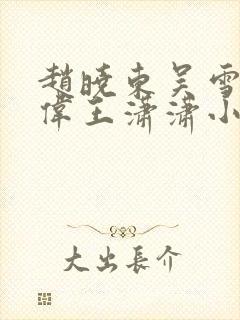 趙曉東吴雪
偉王潇潇小
大出長介